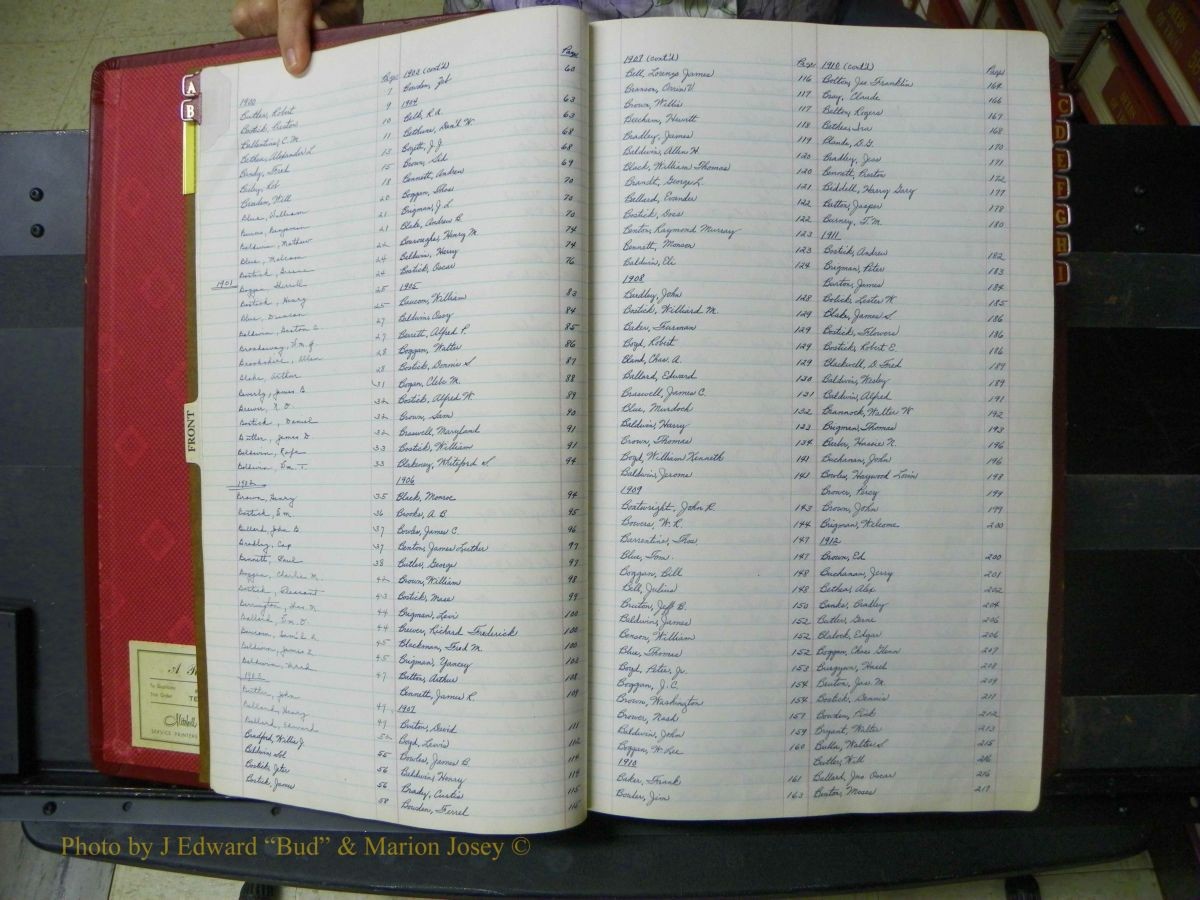 A
B
FRONT
Page
1900
Butler, Robert 7
Bostick, 9
Ballentine, C. M. 10
Bethea, Alexander L. 11
Brady, Fred 13
15
Braden, Will 18
Blue, William 20
Burns, Benjamin 21
Baldwin, Mathew 21
Blue, Malcom 22
Bostick, Greene 24
1901
Boggan, Sherrill 24
Bostick, Henry 25
Blue, Duncan 25
Baldwin, 27
Broadaway, Wm. J. 27
Brookshire, Allen 28
Blake, Arthur 28
Beverly, James B. 31
Brewer, N. O. 32
Bostick, Daniel 32
Butler, James D. 32
Baldwin, Rufe 33
Baldwin, Wm. T. 33
1902
Brown, Henry 35
Bostick, Em 36
Ballard, John B. 37
Bradley, Cap 37
Bennett, Paul 38
Boggan, Charlie M. 42
Bostick, Pleasant 43
Berrington, 44
Ballard, Wm. D. 44
Baucom, Sam'l L. 45
Baldwin, James L. 45
Baldwin, 47
1903
Butler, John 47
Ballard, Henry 49
Ballard, Edward 52
Bradford, Willie J. 55
Baldwin, Sol 56
Bostick, Jeter 56
Bostick, James 58
1903 (cont'd) Page
Bowden, Job 60
1904
Belk, R. A. 63
Bethune, Dan'l W. 63
Boyett, J. J. 68
Brown, Sid 68
Bennett, Andrew 69
Boggan, Thos. 70
Brigman, J. L. 70
Blake, Andrew B. 70
Bouroughs, Henry M. 74
Baldwin, Harry 74
Bostick, Oscar 76
1905
Baucom, William 83
Baldwin, Ossy 84
Barrett, Alfred P. 85
Boggan, Walter 86
Bostick, Dennis S. 87
Bogan, Clebe M. 88
Bostick, Alfred W. 89
Brown, Sam 90
Braswell, Maryland 91
Bostick, William 91
Blakeney, Whiteford S. 94
1906
Black, Monroe 94
Brooks, A. B. 95
Bowles, James C. 96
Benton, James Luther 97
Butler, George 97
Brown, William 98
Bostick, Mase 99
Brigman, Levi 100
Brewer, Richard Frederick 100
Blackman, Fred M. 100
Brigman, Yancey 103
Bitton, Arthur 108
Bennett, James R. 109
1907
Bruton, David 111
Boyd, Lewis 112
Bowles, James B. 114
Baldwin, Henry 114
Brady, Curtis 115
Bowden, Ferrel 116
1907 (cont'd) Page
Bell, Lorenzo James 116
Branson, Orrin V. 117
Brown, Willis 117
Beecham, Hewitt 118
Bradley, James 119
Baldwin, Allen H. 120
Black, William Thomas 120
Brandt, George L. 121
Ballard, Evander 122
Bostick, Doss 122
Benton, Raymond Murray 123
Bennett, Monson 123
Baldwin, Eli 124
1908
Burdley, John 128
Bostick, Williard M. 129
Baker, Furman 129
Boyd, Robert 129
Bland, Chas. A. 129
Ballard, Edward 130
Braswell, James C. 131
Blue, Murdock 132
Baldwin, Harry 133
Brown, Thomas 134
Boyd, William Kenneth 141
Baldwin, Jerome 141
1909
Boatwright, John R. 143
Bowers, W. R. 144
Barrentine, Thos. 147
Blue, Tom. 147
Boggan, Bill 148
Bell, Julius 148
Bruton, Jeff B. 150
Baldwin, James 152
Benson, William 152
Blue, Thomas 152
Boyd, Peter, Jr. 153
Boggan, J. C. 154
Brown, Washington 154
Brower, Nash 157
Baldwin, John 159
Boggan, W. Lee 160
1910
Baker, Frank 161
Bowler, Jim 163
1910 (cont'd) Page
Bolton, Jas. Franklin 164
Bray, Claude 166
Belton, Rogers 167
Bethea, Ira 168
Blando, D. G. 170
Bradley, Jess 171
Bennett, Preston 172
Biddell, Harry Gary 177
Butler, Jasper 178
Burney, T. M. 180
1911
Bostick, Andrew 182
Brigman, Peter 183
Burton, James 184
Bolick, Lester W. 185
Blake, James S. 186
Bostick, Flowers 186
Bostick, Robert E. 186
Blackwell, D. Fred 189
Baldwin, Wesley 189
Baldwin, Alfred 191
Brannock, Walter W. 192
Brigman, Thomas 193
Beeler, Hassie N. 196
Buchanan, John 196
Bowles, Haywood Louis 198
Brower, Percy 199
Brown, John 199
Brigman, Welcome 200
1912
Brown, Ed 200
Buchanan, Jerry 201
Bethea, Alex 202
Banks, Bradley 204
Butler, Gene 205
Blalock, Edgar 206
Boggan, Chas. Glenn 207
Burgwyn, Hued 208
Bruton, Jas. M. 209
Bostick, Dennis 211
Bowden, Pink 212
Bryant, Walter 213
Butler, Walter S. 215
Butler, Will 216
Ballard, Jno. Oscar 216
Benton, Moses 217
C
D
E
F
G
H
I
SERVICE PRINTERS
Photo by J Edward “Bud” & Marion Josey ©